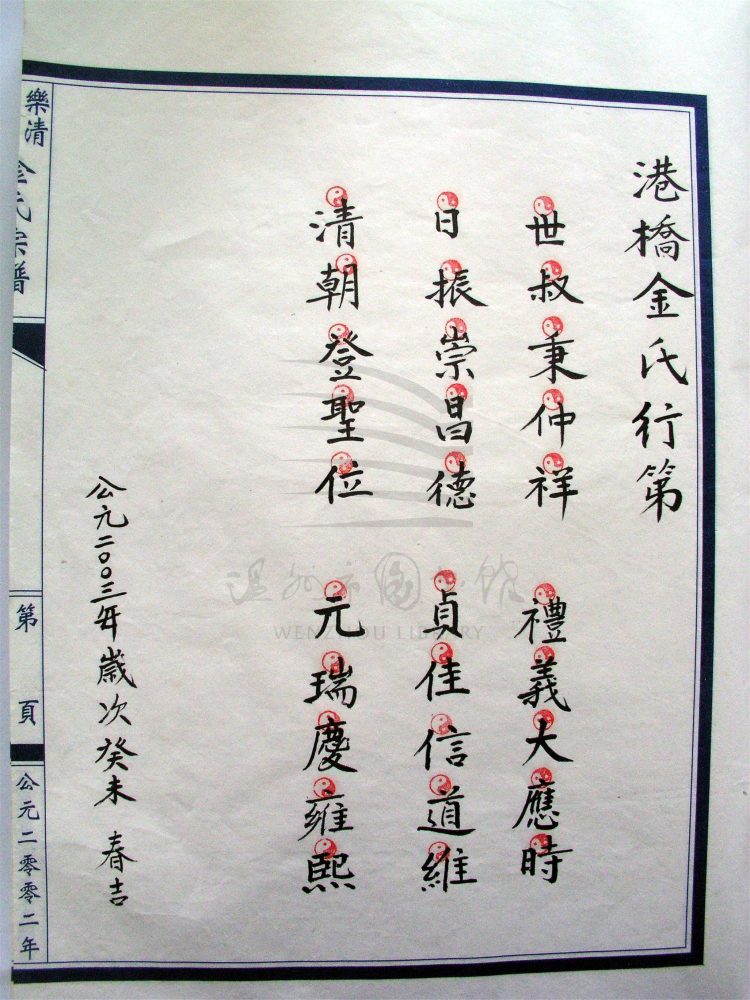 港橋金氏行第
世叔秉仲祥 禮義大應時
日振崇昌德 貞佳信道維
清朝登聖位 元瑞慶雍熙
公元二〇〇三年歲次癸未 春吉
樂清 金氏宗譜
第 頁
公元二零零二年
温州市图书馆
WENZHOU LIBRARY